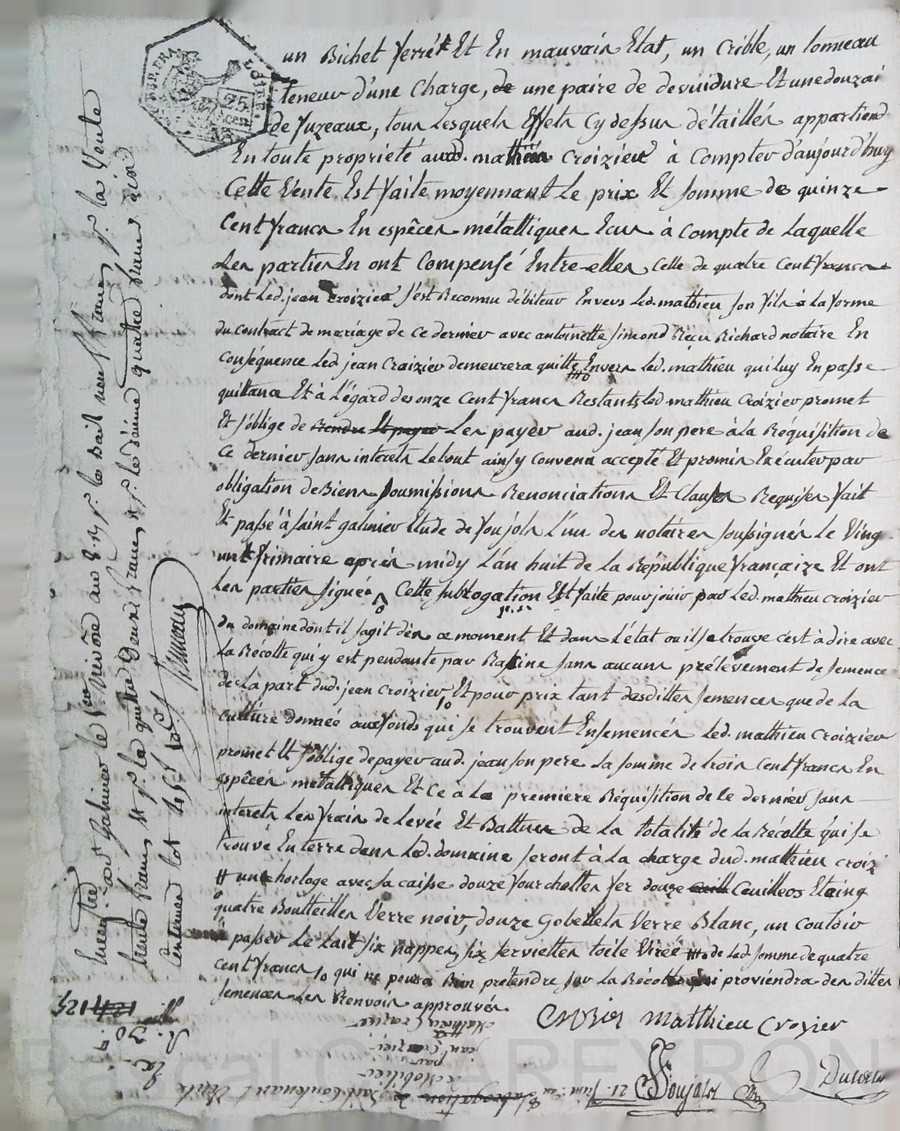 un Bichet ferré Et En mauvais Etat, un Crible, un tonneau
teneur d'une Charge, de une paire de devuidure Et une douzai
de fuzeaux, tous Lesquels Effets Cy dessus détaillés appartiend
En toute propriété aud. mathieu croizier à Compter d'aujourd'huy
Cette Vente Est faite moyennant Le prix Et somme de quinze
Cent francs En espêces métalliques Ecus à compte de Laquelle
Les parties En ont Compensé Entre elles Celle de quatre Cent francs
dont Led. jean croizier s'est Reconnu débiteur Envers Led. mathieu son fils à La forme
du contract de mariage de ce dernier avec antoinette simond Reçu Richard notaire En
Conséquence Led jean Croizier demeurera quitte Envers Led. mathieu qui luy En passe
quittance Et à L'égard des onze Cent francs Restants Led mathieu Croizier promet
Et s'oblige de rendre Et payer Les payer aud. jean son pere à La Requisition de
Ce dernier sans interets Le tout ainsy convenu accepté Et promis Exécuter par
obligation de Biens soumissions Renonciations Et Clauses Requises fait
Et passé à saint galmier Etude de foujols L'un des notaires soussignés Le Ving
un frimaire après midy L'an huit de la République française Et ont
Les parties signées Cette subrogation Est faite pour jouir par Led. mathieu croizier
du domaine dont il s'agit dès ce moment, Et dans L'état ou il se trouve c'est à dire avec
La Recolte qui y est pendante par Racine sans aucuns prélevement de semence
de La part dud. jean croizier Et pour prix tant desdittes semences que de la
culture donnée aux fonds qui se trouvent Ensemencés Led. mathieu Croizier
promet Et s'oblige de payer aud. jean son pere La somme de trois Cent francs En
espêces métalliques Et Ce à La première Réquisition de Ce dernier sans
interets Les frais de Levée Et Batture de La totalité de La Récolte qui se
trouve En terre dans Led. domaine seront à La charge dud. mathieu croiz
# une horloge avec sa caisse douze fourchettes fer douze Ceuilleres Etaing
quatre Boutteilles Verre noir, douze Gobelets Verre Blanc, un Couloir
à passer Le Lait six nappes, six serviettes toile de led somme de quatre
cent francs qui ne poura Rien pretendre sur La Récolte qui proviendra des dittes
semences Les Renvois approuvés
Crozier matthieu Crozier
foujols
Enregistré à St Galmier le nivose an 8. p. le Bail neuf francs p. la Vente
trente francs et p. la quittance deux francs p. le dixieme quatre francs dix
Simond
124 125
mathieu Crozier
jean Crozier
par
Mobilier